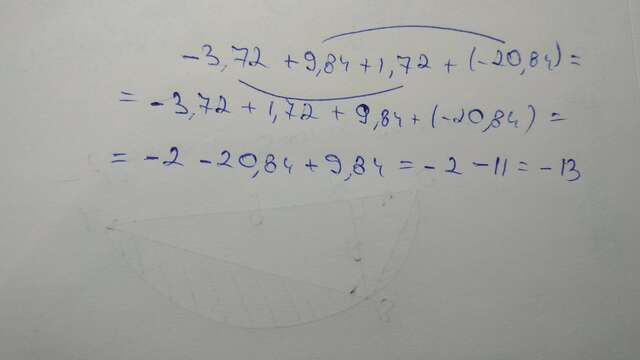 -3,72 + 9,84 + 1,72 + (-20,84) =
= -3,72 + 1,72 + 9,84 + (-20,84) =
= -2 -20,84 + 9,84 = -2 -11 = -13